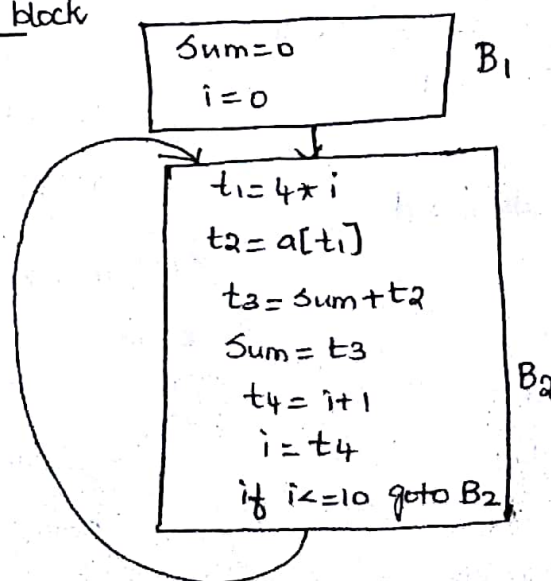 block
Sum=0
i=0
B1
t1=4*i
t2=a[t1]
t3=sum+t2
Sum=t3
t4=i+1
i=t4
if i<=10 goto B2
B2